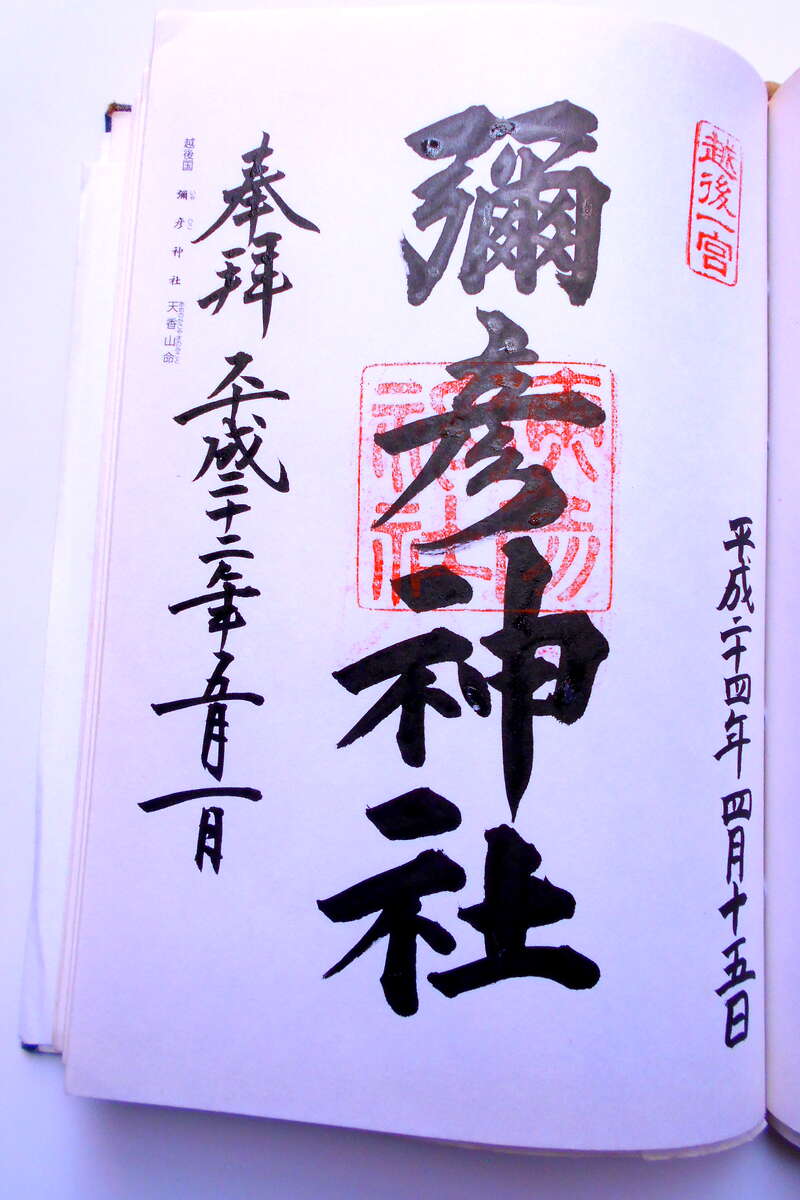 越後一宮
平成二十四年 四月十五日
彌彦神社
奉拝 平成二十二年五月一日
越後国 彌彦神社 天香山命